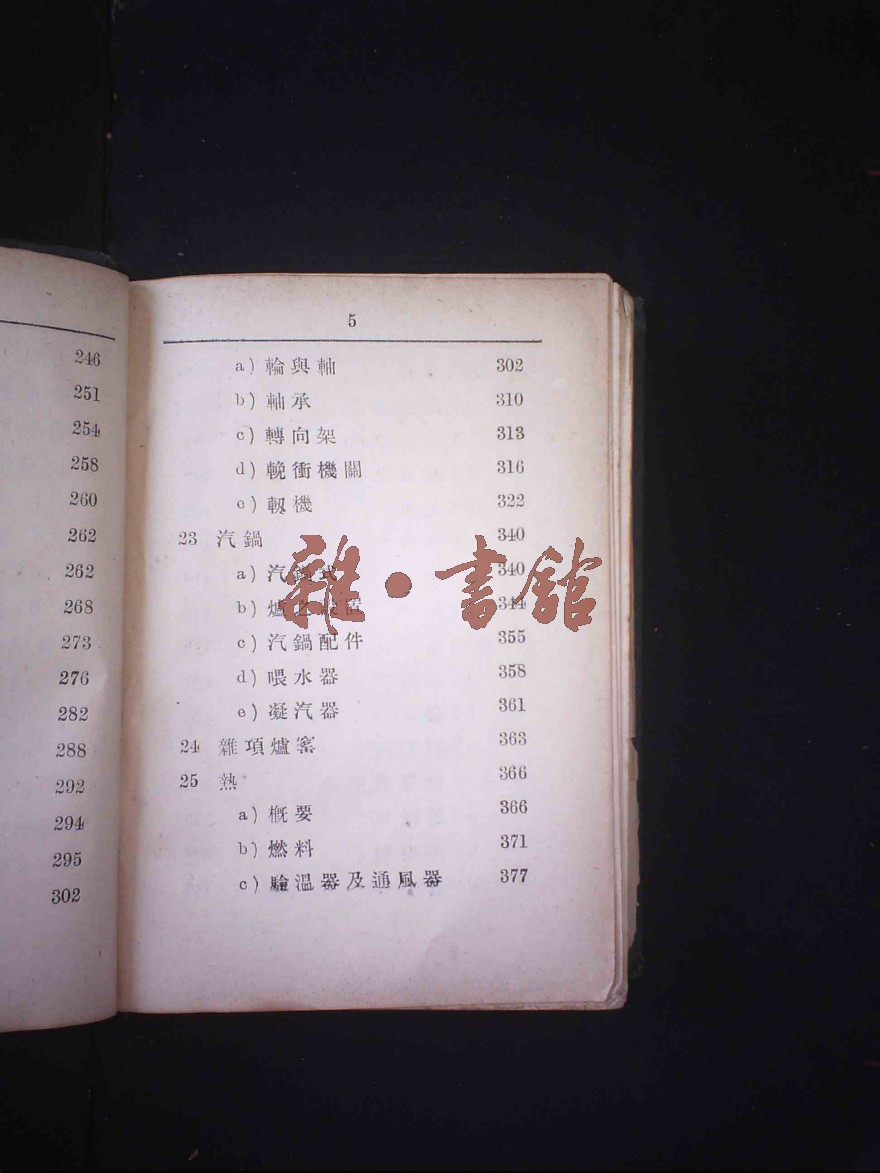 246
251
254
258
260
262
262
268
273
276
282
288
292
294
295
302
5
a) 輪與軸 302
b) 軸承 310
c) 轉向架 313
d) 輓衝機關 316
e) 軔機 322
23 汽鍋 340
a) 汽鍋式 340
b) 爐 置 344
c) 汽鍋配件 355
d) 喂水器 358
e) 凝汽器 361
24 雜項爐窰 363
25 熱 366
a) 概要 366
b) 燃料 371
c) 驗溫器及通風器 377
雜·書館